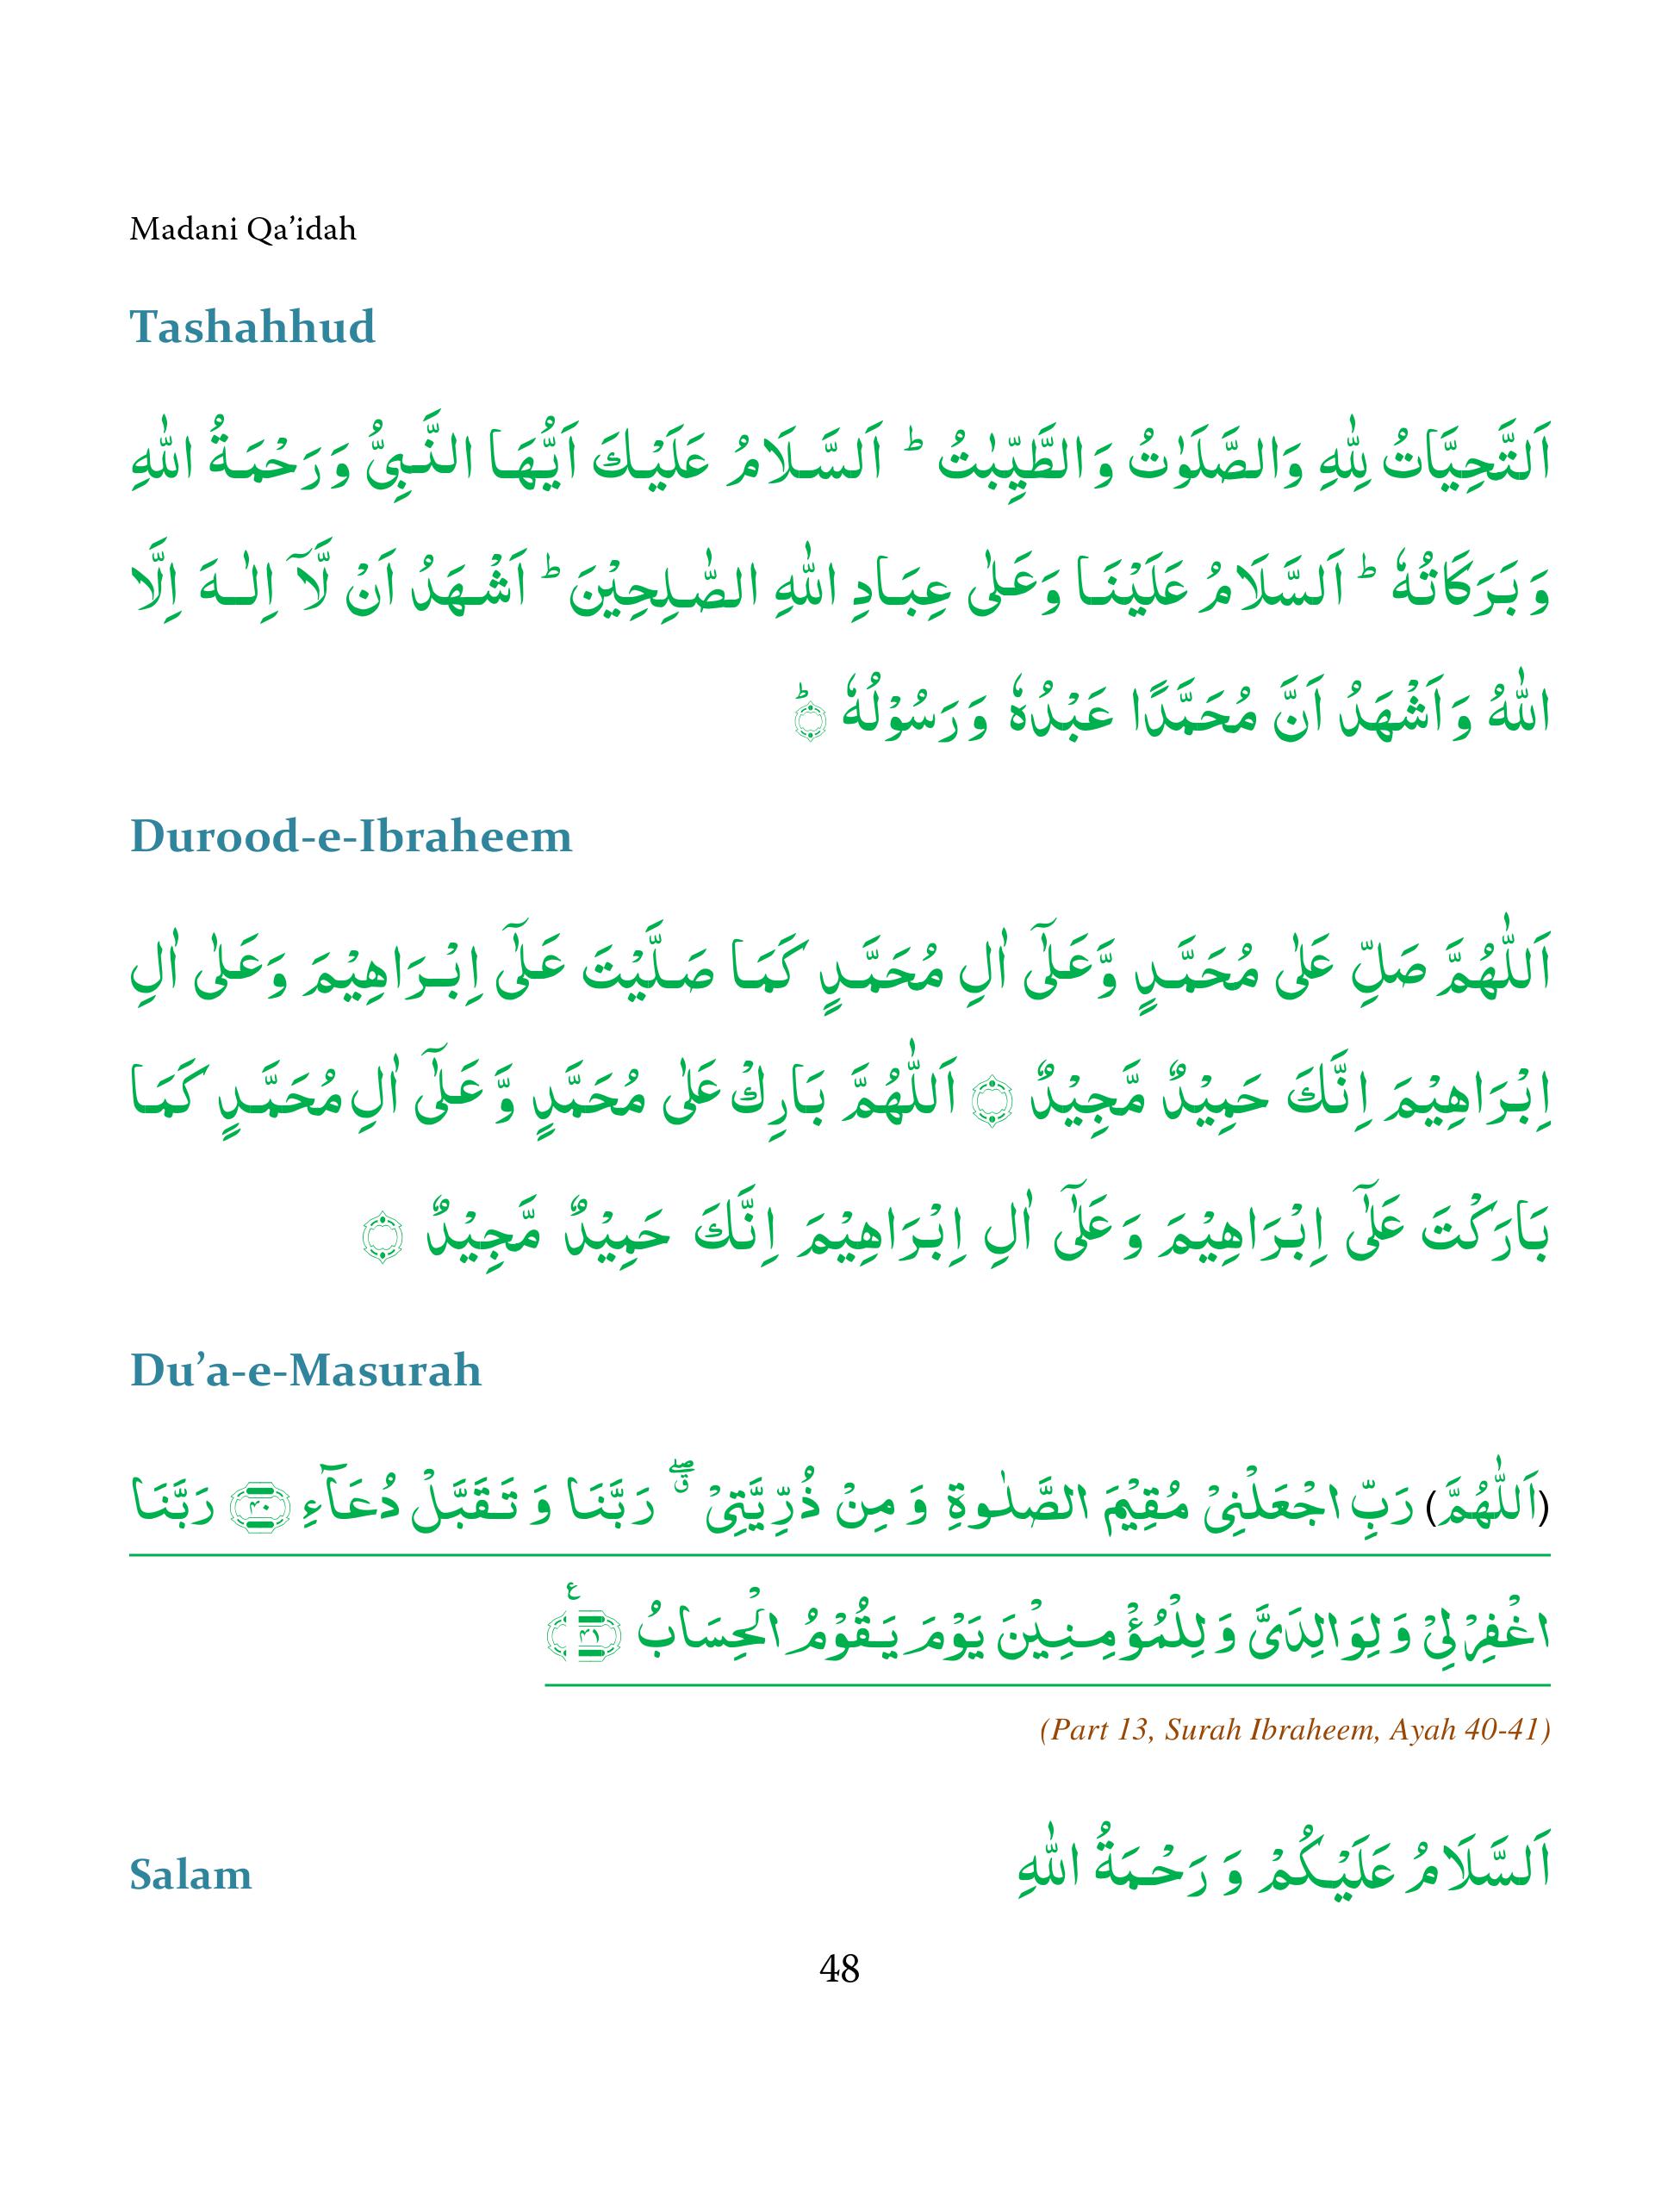 Madani Qa’idah
Tashahhud
اَلتَّحِيَّاتُ لِلّٰهِ وَالصَّلَوٰتُ وَالطَّيِّبٰتُ ؕ اَلسَّلَامُ عَلَيْكَ اَيُّهَا النَّبِيُّ وَرَحْمَةُ اللّٰهِ
وَبَرَكَاتُهٗ ؕ اَلسَّلَامُ عَلَيْنَا وَعَلٰى عِبَادِ اللّٰهِ الصّٰلِحِيْنَ ؕ اَشْهَدُ اَنْ لَّآ اِلٰهَ اِلَّا
اللّٰهُ وَاَشْهَدُ اَنَّ مُحَمَّدًا عَبْدُهٗ وَرَسُوْلُهٗ ؕ۝
Durood-e-Ibraheem
اَللّٰهُمَّ صَلِّ عَلٰى مُحَمَّدٍ وَّعَلٰٓى اٰلِ مُحَمَّدٍ كَمَا صَلَّيْتَ عَلٰٓى اِبْرَاهِيْمَ وَعَلٰى اٰلِ
اِبْرَاهِيْمَ اِنَّكَ حَمِيْدٌ مَّجِيْدٌ ۝ اَللّٰهُمَّ بَارِكْ عَلٰى مُحَمَّدٍ وَّعَلٰٓى اٰلِ مُحَمَّدٍ كَمَا
بَارَكْتَ عَلٰٓى اِبْرَاهِيْمَ وَعَلٰٓى اٰلِ اِبْرَاهِيْمَ اِنَّكَ حَمِيْدٌ مَّجِيْدٌ ۝
Du’a-e-Masurah
(اَللّٰهُمَّ) رَبِّ اجْعَلْنِيْ مُقِيْمَ الصَّلٰوةِ وَمِنْ ذُرِّيَّتِيْ ۖۗ رَبَّنَا وَتَقَبَّلْ دُعَآءِ ۝۴۰ رَبَّنَا
اغْفِرْ لِيْ وَلِوَالِدَيَّ وَلِلْمُؤْمِنِيْنَ يَوْمَ يَقُوْمُ الْحِسَابُ ۝۴۱ ع
(Part 13, Surah Ibraheem, Ayah 40-41)
Salam اَلسَّلَامُ عَلَيْكُمْ وَرَحْمَةُ اللّٰهِ
48